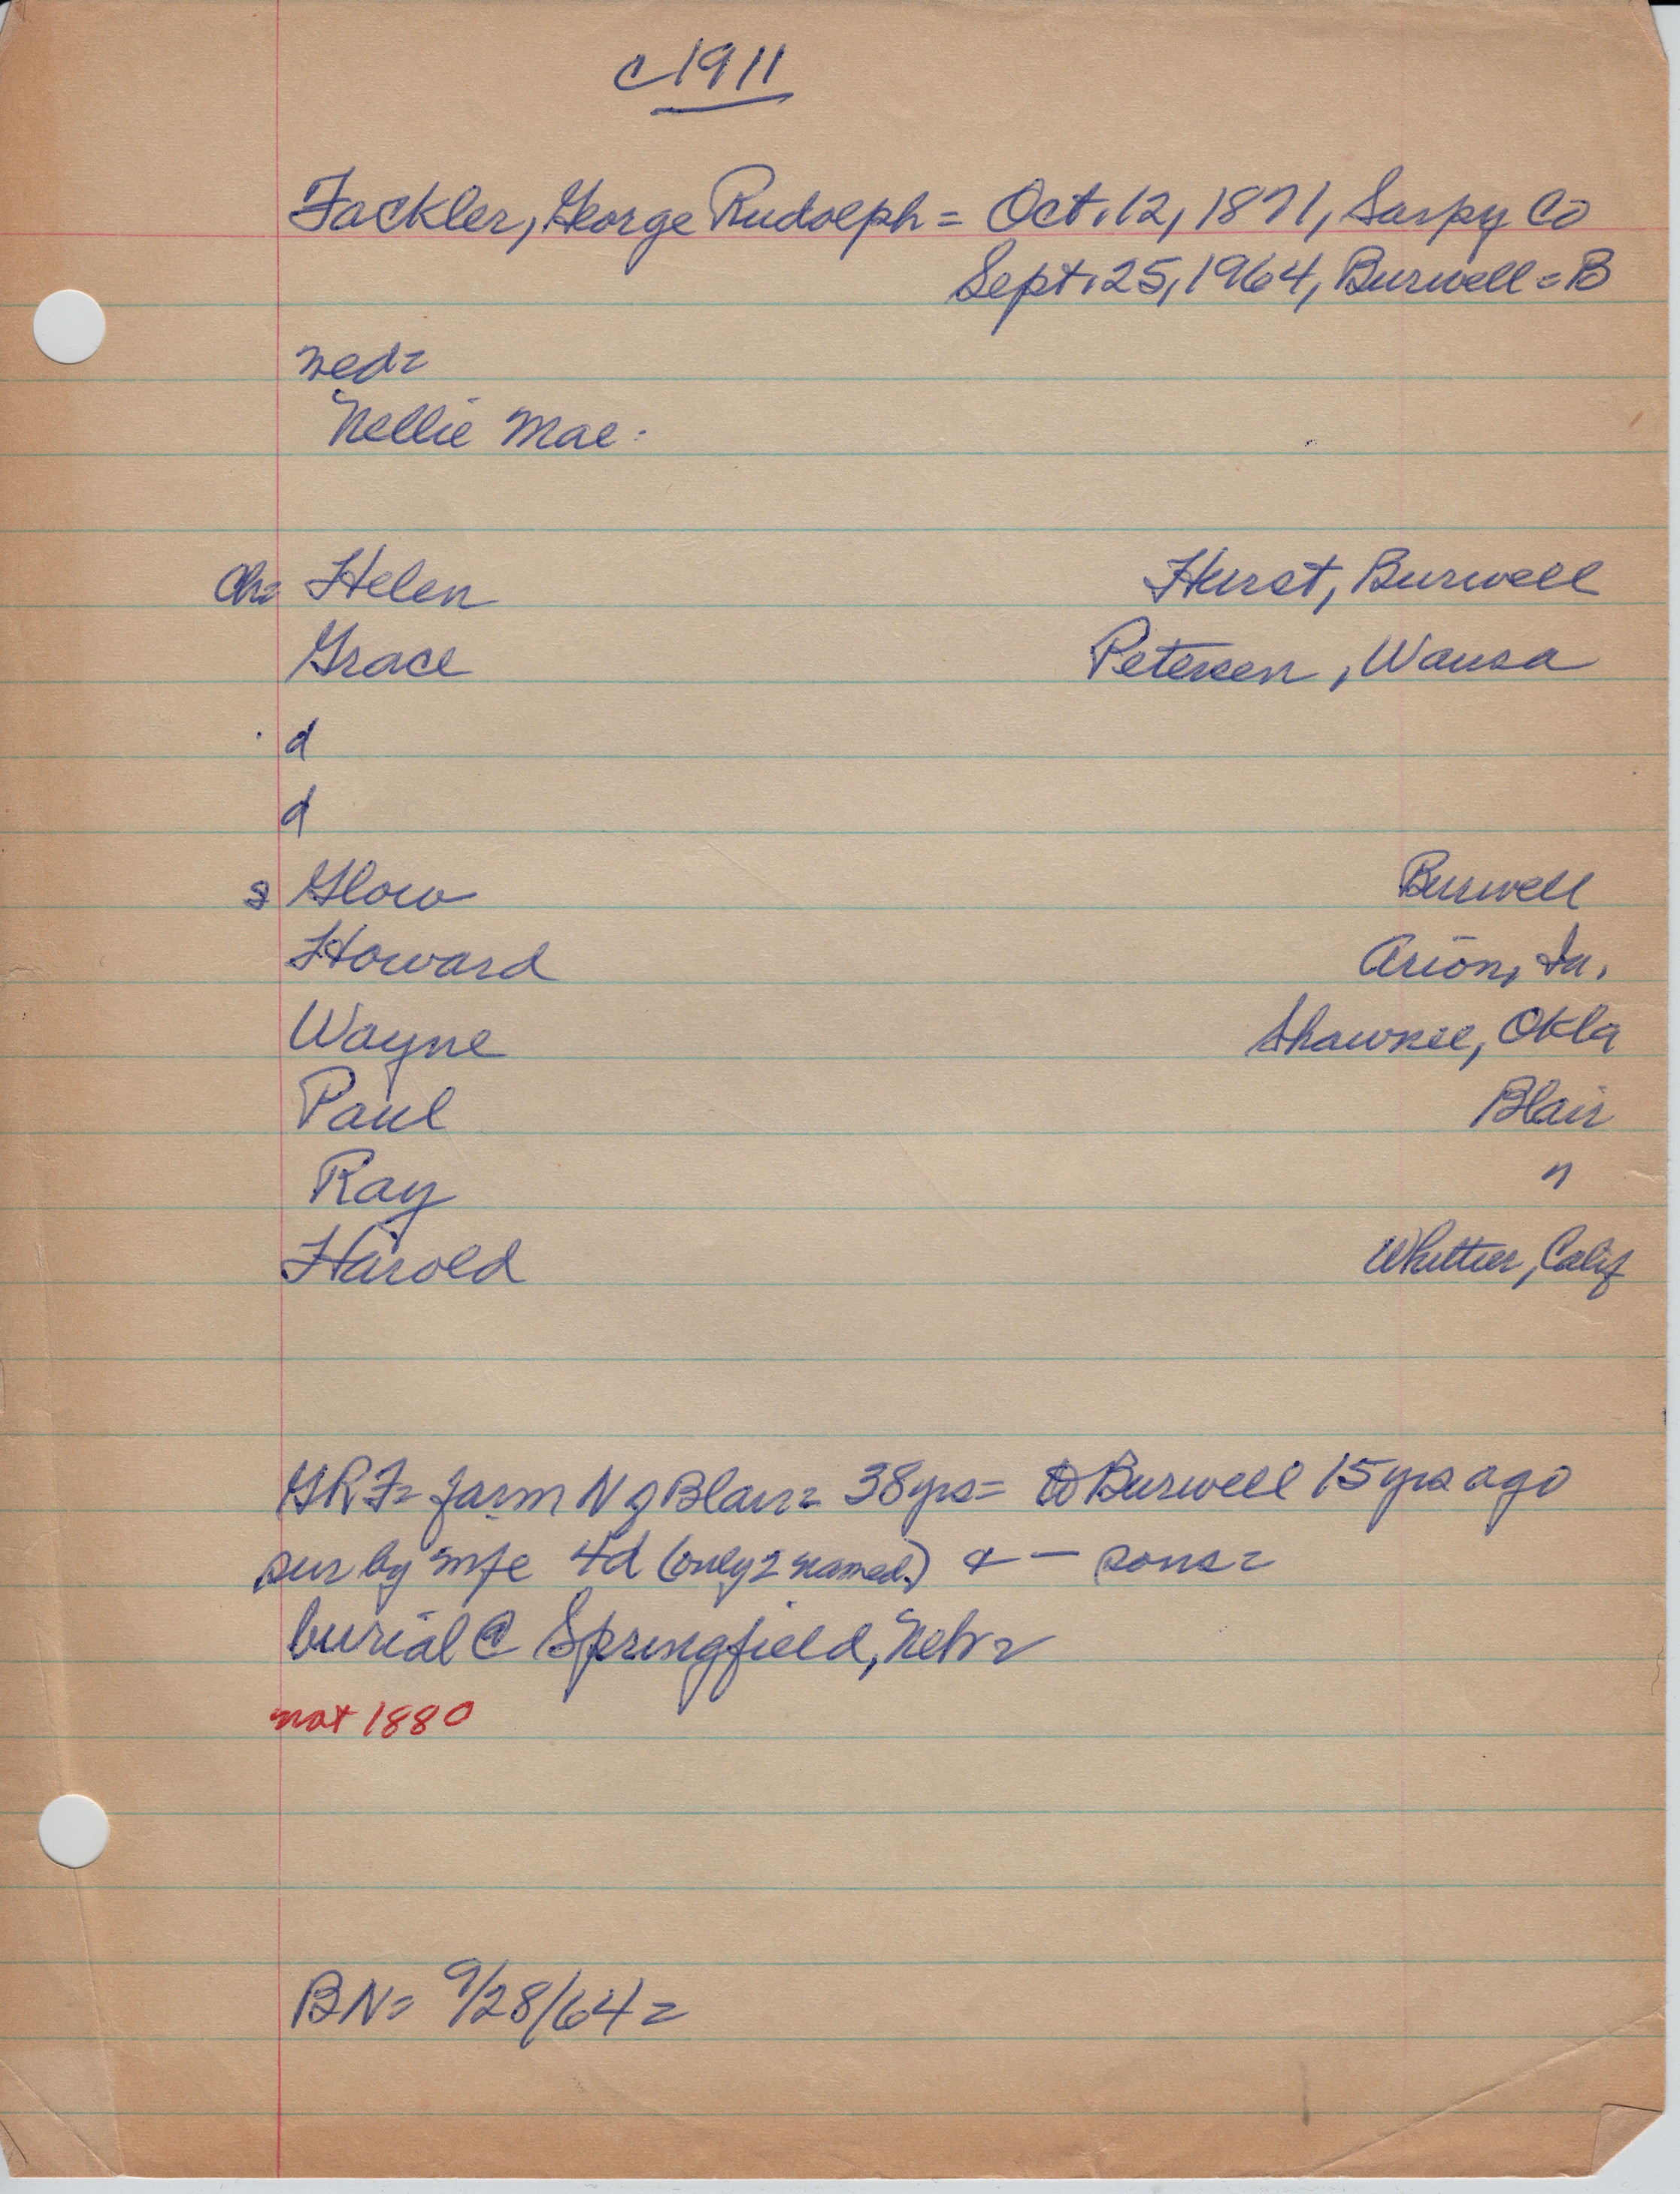 c 1911
Fackler, George Rudolph = Oct. 12, 1871, Sarpy Co
Sept. 25, 1964, Burwell = B
wed=
Nellie Mae
Ch= Helen Hurst, Burwell
Grace Petersen, Wausa
d
d
s Glow Burwell
Howard Arion, Ia.
Wayne Shawnee, Okla
Paul Blair
Ray "
Harold Whittier, Calif
GRF= farm N of Blair= 38 yrs= to Burwell 15 yrs ago
sur by wife 4d (only 2 named.) & — sons=
burial @ Springfield, Nebr=
not 1880
BN= 9/28/64=